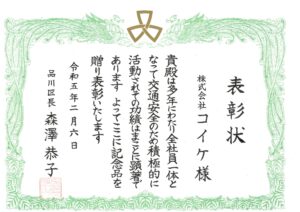 表彰状
株式会社
コイケ様
貴殿は多年にわたり全社員一体と
なって交通安全のため積極的に
活動されその功績はまことに顕著で
あります よってここに記念品を
贈り表彰いたします
令和五年二月六日
品川区長 森澤恭子